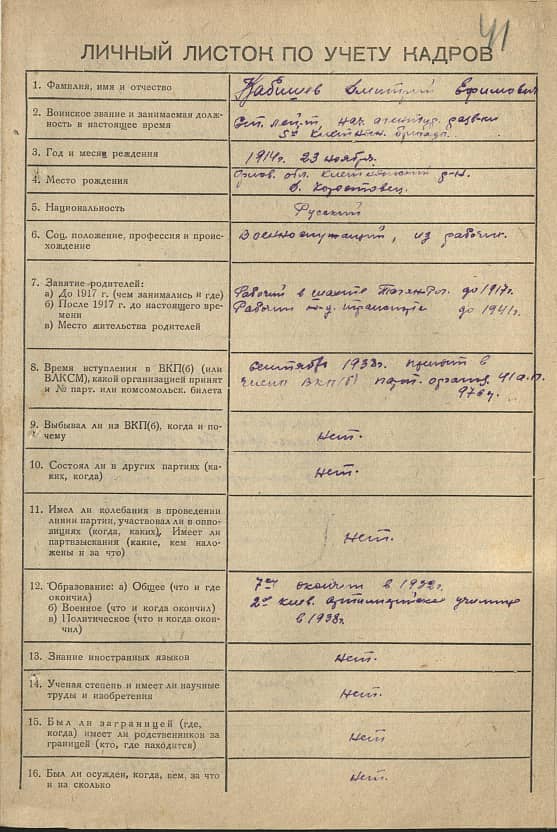 41
ЛИЧНЫЙ ЛИСТОК ПО УЧЕТУ КАДРОВ
1. Фамилия, имя и отчество
Кабишев Дмитрий Ефимович
2. Воинское звание и занимаемая долж-
ность в настоящее время
Ст. лейт. нач. развед.
5й Клетнян. бригады
3. Год и месяц рождения
1914г. 23 ноября.
4. Место рождения
Орлов. обл. Клетнянский р-н.
5. Национальность
Русский
6. Соц. положение, профессия и проис-
хождение
Военнослужащий, из рабочих.
7. Занятие родителей:
а) До 1917 г. (чем занимались и где)
б) После 1917 г. до настоящего вре-
мени
в) Место жительства родителей
Рабочий в шахте до 1917г.
Рабочий транспорта до 1941г.
8. Время вступления в ВКП(б) (или
ВЛКСМ), какой организацией принят
и № парт. или комсомольск. билета
сентябрь 1938г. принят в
ВКП(б) парт. 41 а.п.
9. Выбывал ли из ВКП(б), когда и по-
чему
нет.
10. Состоял ли в других партиях (ка-
ких, когда)
нет.
11. Имел ли колебания в проведении
линии партии, участвовал ли в оппо-
зициях (когда, каких), Имеет ли
партвзыскания (какие, кем нало-
жены и за что)
нет.
12. Образование: а) Общее (что и где
окончил)
б) Военное (что и когда окончил)
в) Политическое (что и когда окон-
чил)
7м окончил в 1932г.
2ое киев. артиллерийское училище
в 1938г.
13. Знание иностранных языков
нет.
14. Ученая степень и имеет ли научные
труды и изобретения
нет.
15. Был ли заграницей (где,
когда) имеет ли родственников за
границей (кто, где находится)
нет
16. Был ли осужден, когда, кем, за что
и на сколько
нет.